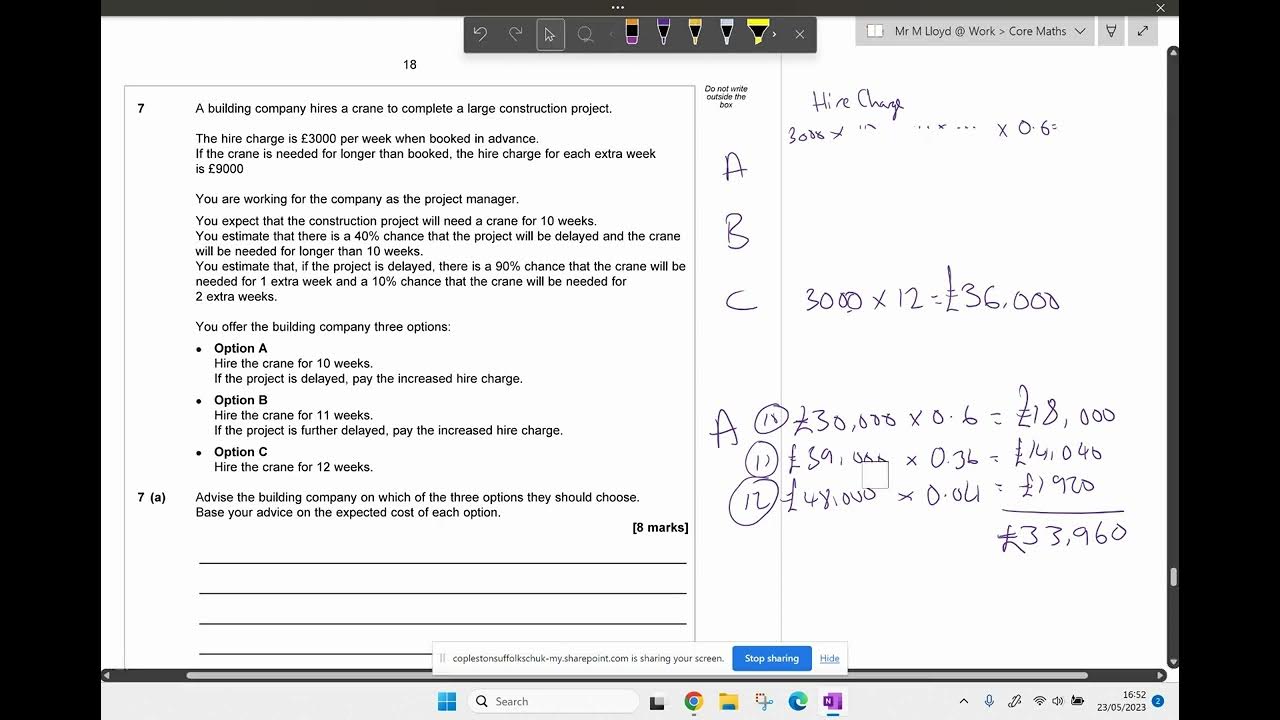 Mr M Lloyd @ Work > Core Maths
18
Do not write
outside the
box
7 A building company hires a crane to complete a large construction project.
The hire charge is £3000 per week when booked in advance.
If the crane is needed for longer than booked, the hire charge for each extra week
is £9000
You are working for the company as the project manager.
You expect that the construction project will need a crane for 10 weeks.
You estimate that there is a 40% chance that the project will be delayed and the crane
will be needed for longer than 10 weeks.
You estimate that, if the project is delayed, there is a 90% chance that the crane will be
needed for 1 extra week and a 10% chance that the crane will be needed for
2 extra weeks.
You offer the building company three options:
• Option A
Hire the crane for 10 weeks.
If the project is delayed, pay the increased hire charge.
• Option B
Hire the crane for 11 weeks.
If the project is further delayed, pay the increased hire charge.
• Option C
Hire the crane for 12 weeks.
7 (a) Advise the building company on which of the three options they should choose.
Base your advice on the expected cost of each option.
[8 marks]
Hire Charge
3000 x x 0.6=
A
B
C 3000 x 12 = £36,000
A 10 £30,000 x 0.6 = £18,000
11 £39,000 x 0.36 = £14,040
12 £48,000 x 0.04 = £1920
£33,960
coplestonsuffolkschuk-my.sharepoint.com is sharing your screen.
Stop sharing
Hide
Search
16:52
23/05/2023
2